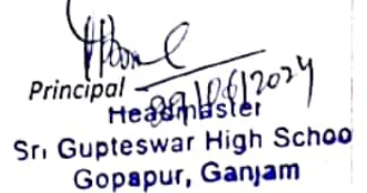 Principal
Headmaster
Sri Gupteswar High Schoo
Gopapur, Ganjam